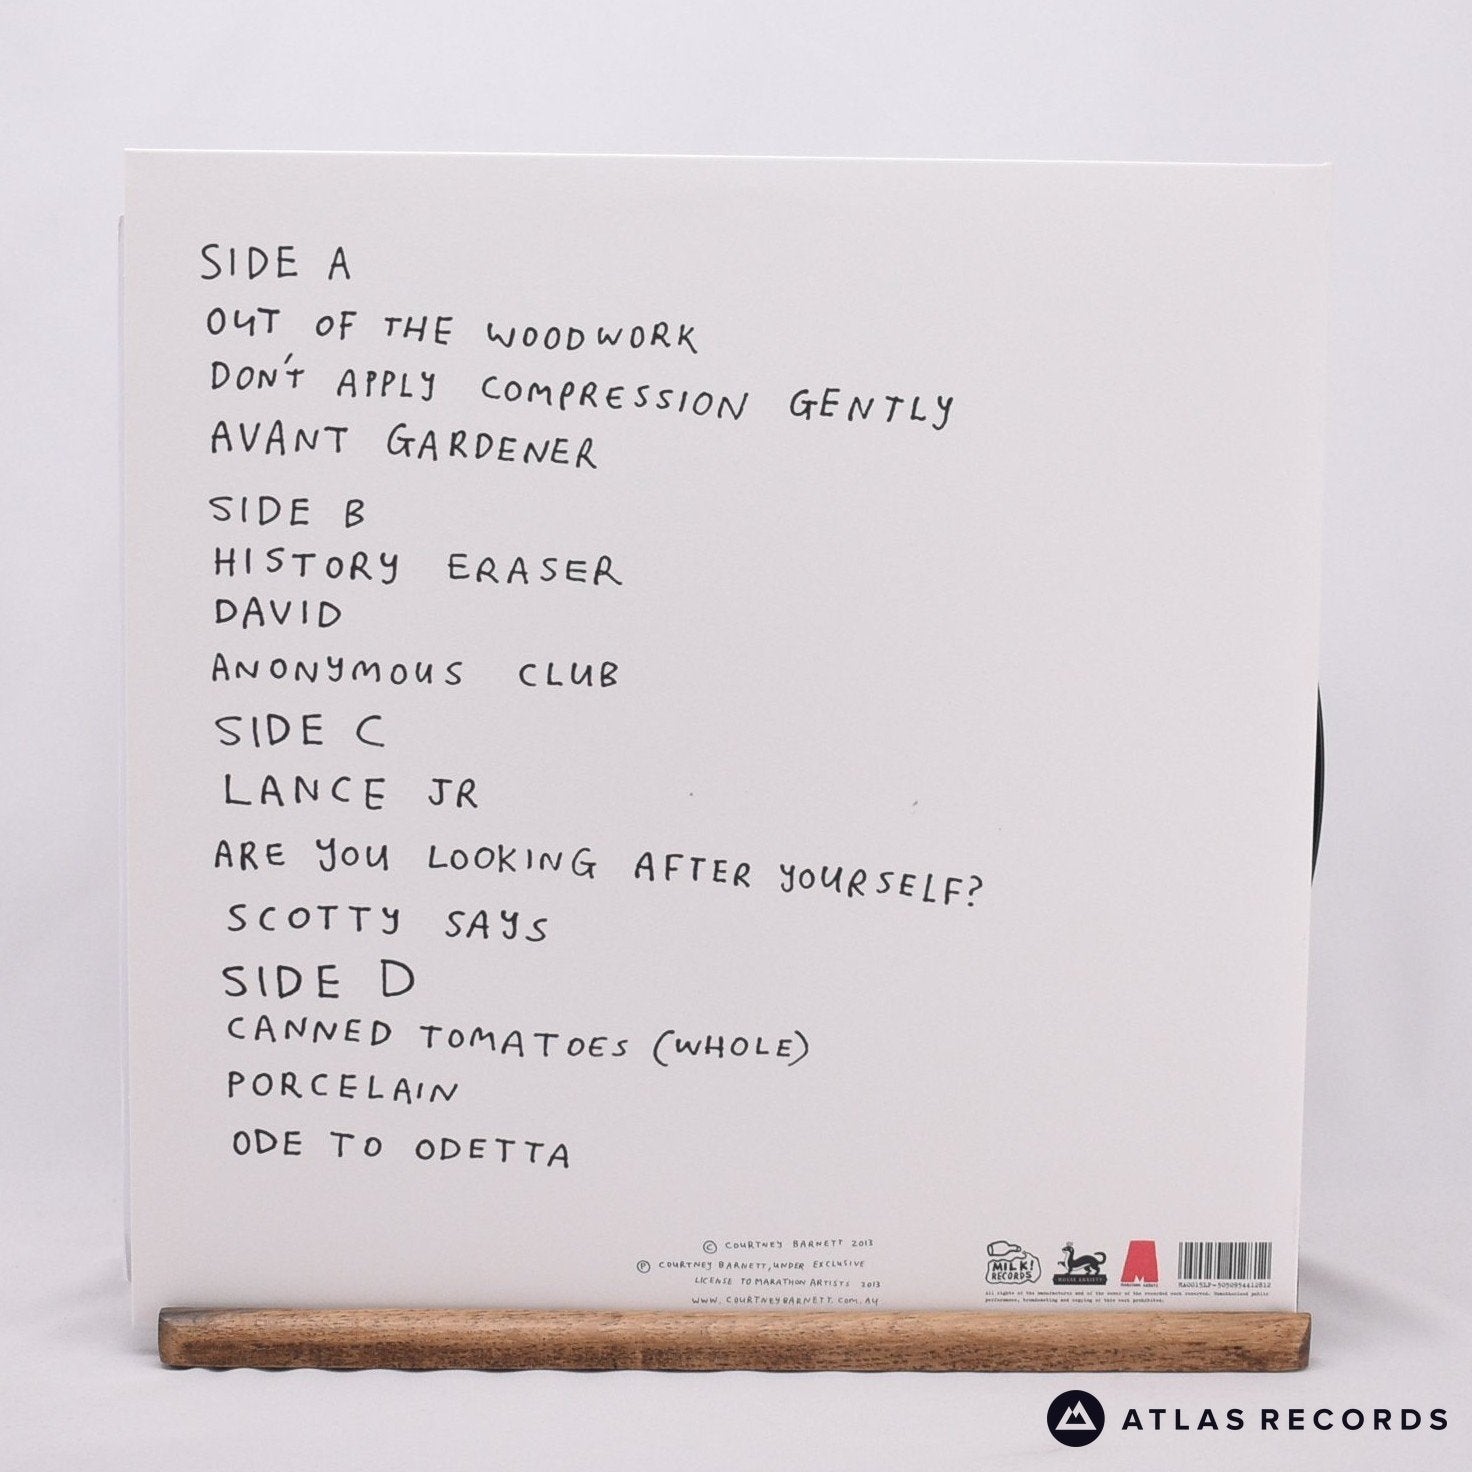 SIDE A
OUT OF THE WOODWORK
DON'T APPLY COMPRESSION GENTLY
AVANT GARDENER
SIDE B
HISTORY ERASER
DAVID
ANONYMOUS CLUB
SIDE C
LANCE JR
ARE YOU LOOKING AFTER YOURSELF?
SCOTTY SAYS
SIDE D
CANNED TOMATOES (WHOLE)
PORCELAIN
ODE TO ODETTA
© COURTNEY BARNETT 2013
℗ COURTNEY BARNETT, UNDER EXCLUSIVE
LICENSE TO MARATHON ARTISTS 2013
WWW.COURTNEYBARNETT.COM.AU
MILK!
RECORDS
HOUSE ANXIETY
MARATHON ARTISTS
MA0015LP - 5050954412812
All rights of the manufacturer and of the owner of the recorded work reserved. Unauthorised public
performance, broadcasting and copying of this work prohibited.
ATLAS RECORDS